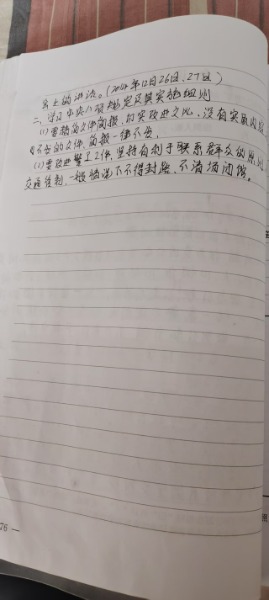 会上的讲话。(2024年12月26日、27日)
二、学习中央八项规定及其实施细则
(1)要精简文件简报,切实改进文风,没有实质内容
可发可不发的文件、简报一律不发。
(2)要改进警卫工作,坚持有利于联系群众的原则
交通管制,一般情况下不得封路、不清场闭馆。
76—